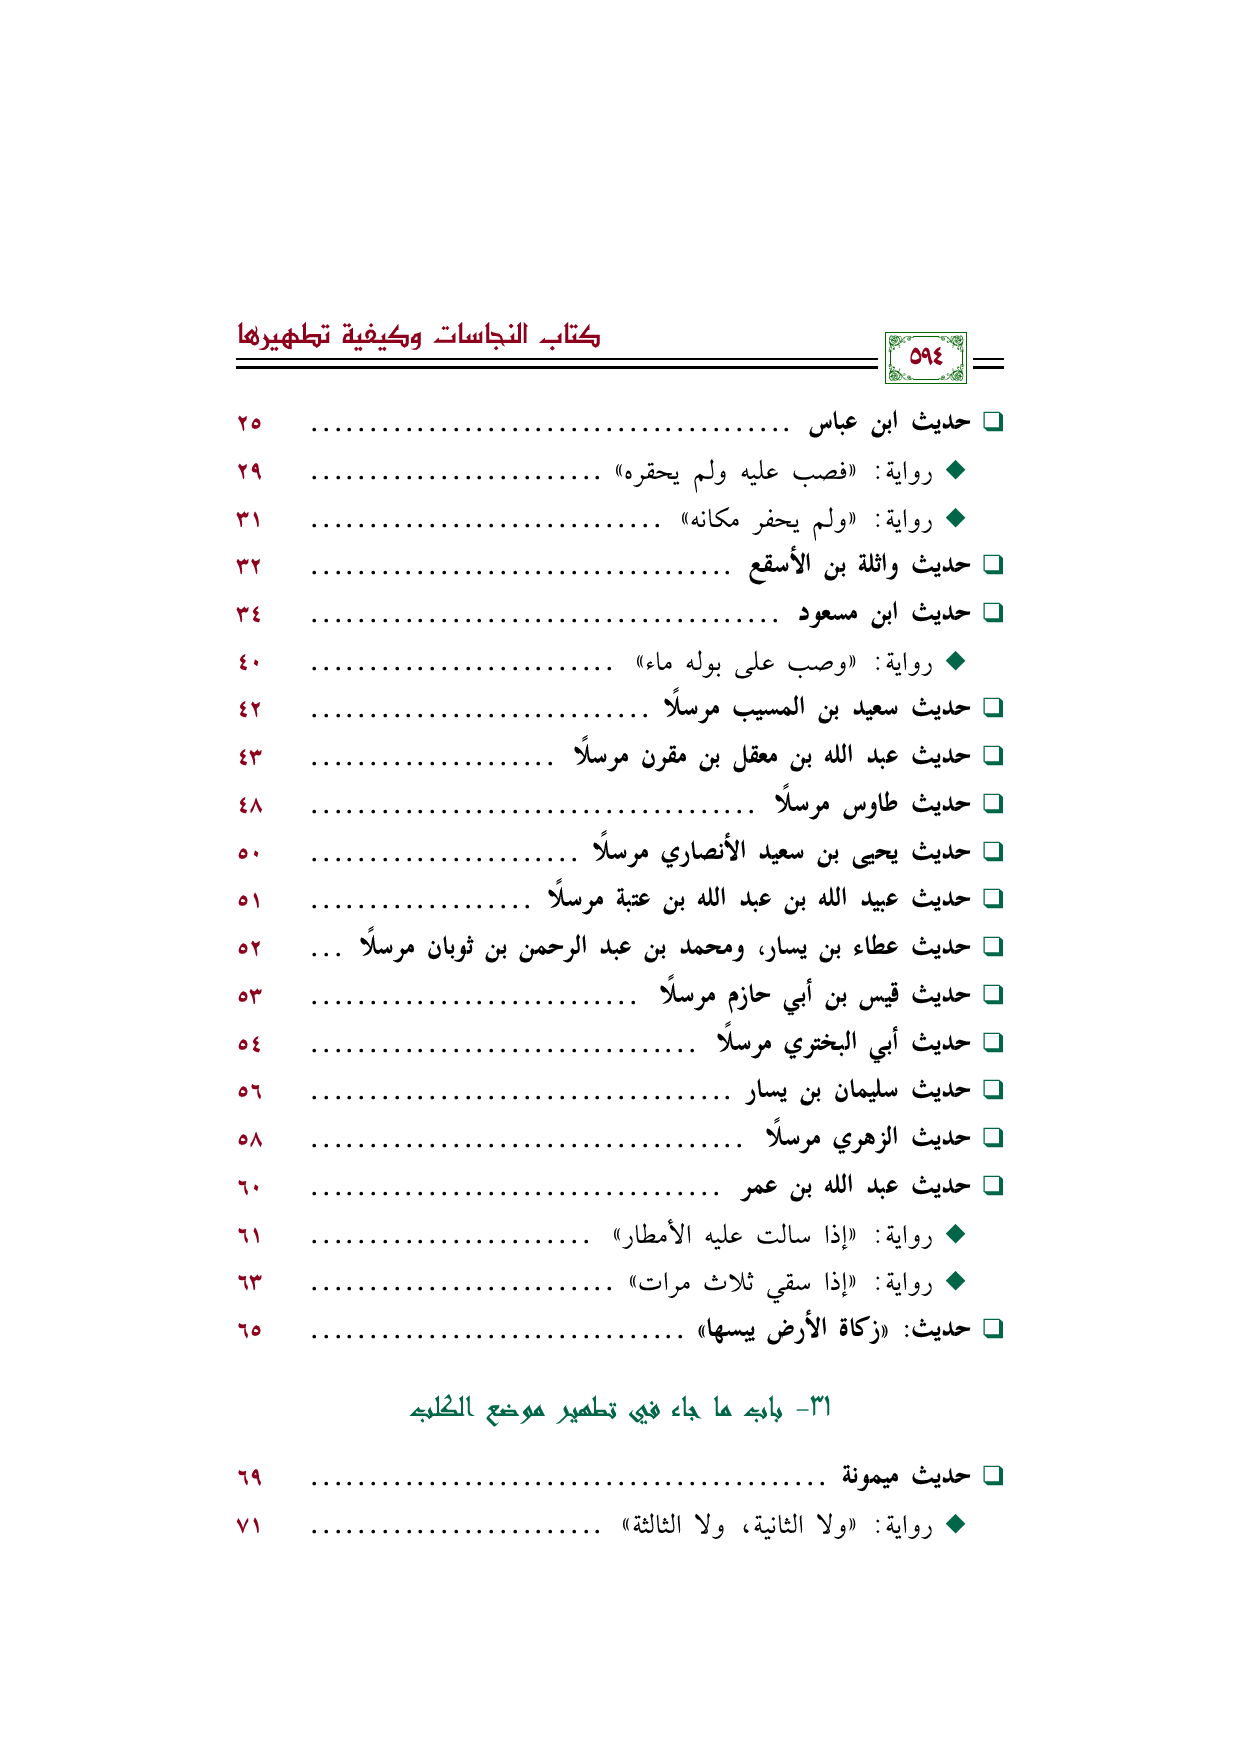 كتاب النجاسات وكيفية تطهيرها
٥٩٤
❏ حديث ابن عباس ......................................... ٢٥
◆ رواية: «فصب عليه ولم يحقره» ......................... ٢٩
◆ رواية: «ولم يحفر مكانه» .............................. ٣١
❏ حديث واثلة بن الأسقع .................................... ٣٢
❏ حديث ابن مسعود ........................................ ٣٤
◆ رواية: «وصب على بوله ماء» .......................... ٤٠
❏ حديث سعيد بن المسيب مرسلًا ............................. ٤٢
❏ حديث عبد الله بن معقل بن مقرن مرسلًا ..................... ٤٣
❏ حديث طاوس مرسلًا ...................................... ٤٨
❏ حديث يحيى بن سعيد الأنصاري مرسلًا ....................... ٥٠
❏ حديث عبيد الله بن عبد الله بن عتبة مرسلًا ................... ٥١
❏ حديث عطاء بن يسار، ومحمد بن عبد الرحمن بن ثوبان مرسلًا ... ٥٢
❏ حديث قيس بن أبي حازم مرسلًا ............................ ٥٣
❏ حديث أبي البختري مرسلًا ................................. ٥٤
❏ حديث سليمان بن يسار .................................... ٥٦
❏ حديث الزهري مرسلًا ..................................... ٥٨
❏ حديث عبد الله بن عمر ................................... ٦٠
◆ رواية: «إذا سالت عليه الأمطار» ........................ ٦١
◆ رواية: «إذا سقي ثلاث مرات» .......................... ٦٣
❏ حديث: «زكاة الأرض يبسها» ................................ ٦٥
٣١- باب ما جاء في تطهير موضع الكلب
❏ حديث ميمونة ............................................ ٦٩
◆ رواية: «ولا الثانية، ولا الثالثة» ......................... ٧١